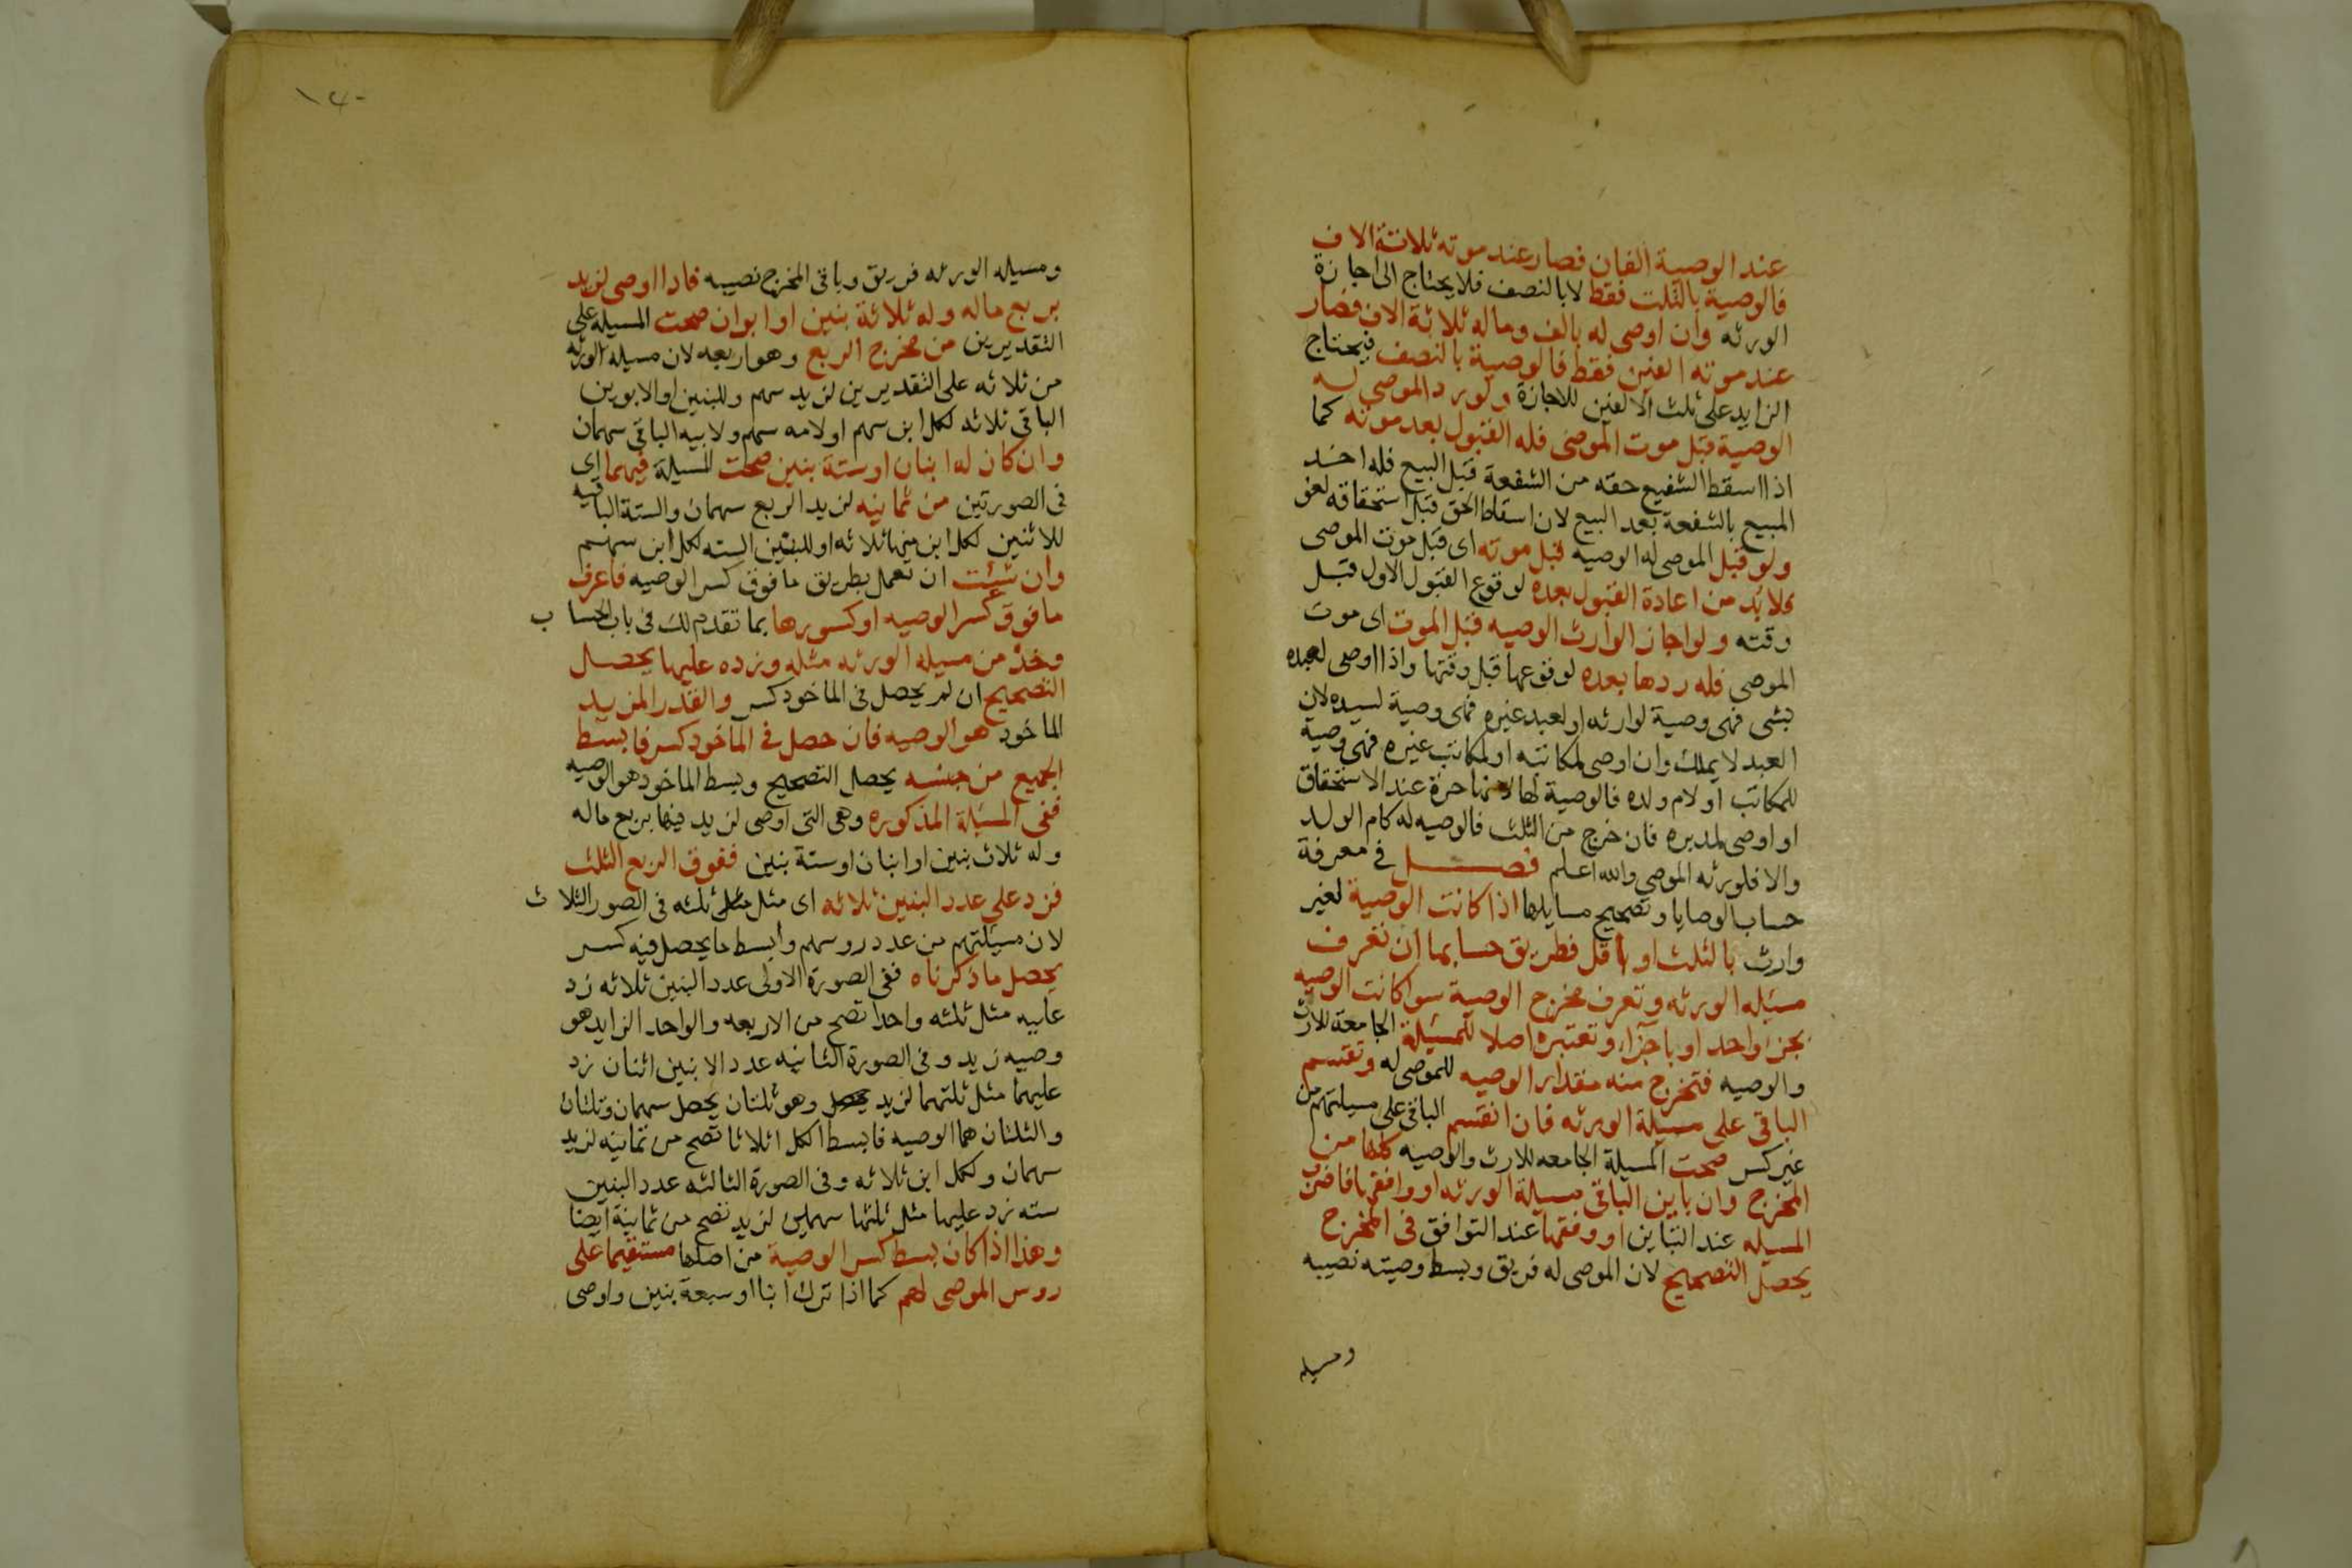 عند الوصية الفان فصار عند موته ثلاثة الاف
فالوصية بالثلث فقط لا بالنصف فلا يحتاج الى اجازة
الورثه وان اوصى له بالف وماله ثلاثة الاف فصار
عند موته الفين فقط فالوصية بالنصف فيحتاج
الزايد على ثلث الالفين للاجازة ولو رد الموصى له
الوصية قبل موت الموصى فله القبول بعد موته كما
اذا اسقط الشفيع حقه من الشفعة قبل البيع فله اخذ
المبيع بالشفعة بعد البيع لان اسقاط الحق قبل استحقاقه لغو
ولو قبل الموصى له الوصيه قبل موته اى قبل موت الموصى
فلا بد من اعادة القبول بعده لوقوع القبول الاول قبل
وقته ولو اجاز الوارث الوصيه قبل الموت اى موت
الموصى فله ردها بعده لوقوعها قبل وقتها واذا اوصى لعبده
بشى فهى وصية لوارثه او لعبد غيره فهى وصية لسيده لان
العبد لا يملك وان اوصى لمكاتبه او لمكاتب غيره فهى وصية
للمكاتب او لام ولده فالوصية لها لانها حرة عند الاستحقاق
او اوصى لمدبره فان خرج من الثلث فالوصيه له كام الولد
والا فلورثه الموصى والله اعلم فصل فى معرفة
حساب الوصايا وتصحيح مسايلها اذا كانت الوصية لغير
وارث بالثلث او باقل فطريق حسابها ان تعرف
مسئله الورثه وتعرف مخرج الوصية سوا كانت الوصيه
بجزء واحد او باجزاء وتعتبره اصلا للمسيلة الجامعة للارث
والوصيه فتخرج منه مقدار الوصيه للموصى له وتقسم
الباقى على مسيلة الورثه فان انقسم الباقى على مسيلتهم من
غير كسر صحت المسيلة الجامعه للارث والوصيه كلها من
المخرج وان باين الباقى مسيلة الورثه او وافقها فاضرب
المسيله عند التباين او وفقها عند التوافق فى المخرج
يحصل التصحيح لان الموصى له فريق وبسط وصيته نصيبه
ومسيله
١٤٠
ومسيله الورثه فريق وباقى المخرج نصيبه فاذا اوصى لزيد
بربع ماله وله ثلاثة بنين او ابوان صحت المسيله على
التقديرين من مخرج الربع وهو اربعه لان مسيله الورثه
من ثلاثه على التقديرين لزيد سهم وللبنين او الابوين
الباقى ثلاثه لكل ابن سهم او لامه سهم ولابيه الباقى سهمان
وان كان له ابنان او ستة بنين صحت المسيلة فيهما اى
فى الصورتين من ثمانيه لزيد الربع سهمان والستة الباقيه
للاثنين لكل ابن منها ثلاثه او للبنين السته لكل ابن سهم
وان شئت ان تعمل بطريق ما فوق كسر الوصيه فاعرف
ما فوق كسر الوصيه او كسورها بما تقدم لك فى باب الحساب
وخذ من مسيله الورثه مثله وزده عليها يحصل
التصحيح ان لم يحصل فى الماخوذ كسر والقدر المزيد
الماخوذ هو الوصيه فان حصل فى الماخوذ كسر فابسط
الجميع من جنسه يحصل التصحيح وبسط الماخوذ هو الوصيه
ففى المسئلة المذكوره وهى التى اوصى لزيد فيها بربع ماله
وله ثلاث بنين او ابنان او ستة بنين ففوق الربع الثلث
فزد على عدد البنين ثلاثه اى مثل مثل ثلثه فى الصور الثلاث
لان مسيلتهم من عدد روسهم وابسط ما يحصل فيه كسر
يحصل ما ذكرناه ففى الصورة الاولى عدد البنين ثلاثه زد
عليه مثل ثلثه واحدا تصح من الاربعه والواحد الزايد هو
وصيه زيد وفى الصورة الثانيه عدد الابنين اثنان زد
عليهما مثل ثلثهما لزيد وهو ثلثان يحصل سهمان وثلثان
والثلثان هما الوصيه فابسط الكل اثلاثا تصح من ثمانيه لزيد
سهمان ولكل ابن ثلاثه وفى الصورة الثالثه عدد البنين
سته زد عليها مثل ثلثها سهمين لزيد تصح من ثمانية ايضا
وهذا اذا كان بسط كسر الوصية من اصلها مستقيما على
روس الموصى لهم كما اذا ترك ابنا او سبعة بنين واوصى